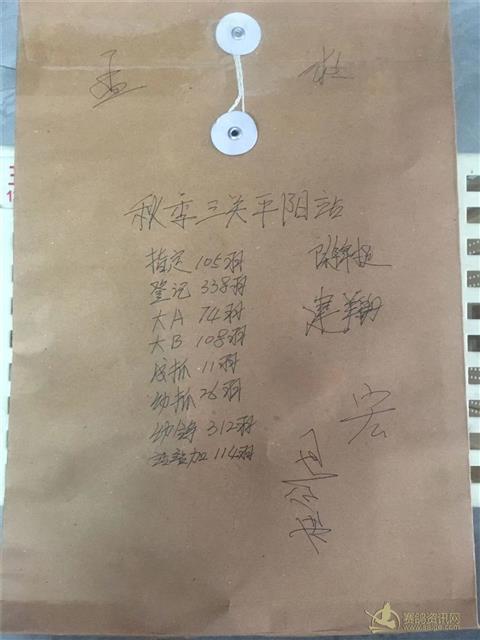 孟
秋季三关平阳站
指定 105羽
登记 338羽
大A 74羽
大B 108羽
成抓 11羽
幼抓 26羽
幼鸽 312羽
加 114羽
建翔
宏
赛鸽资讯网